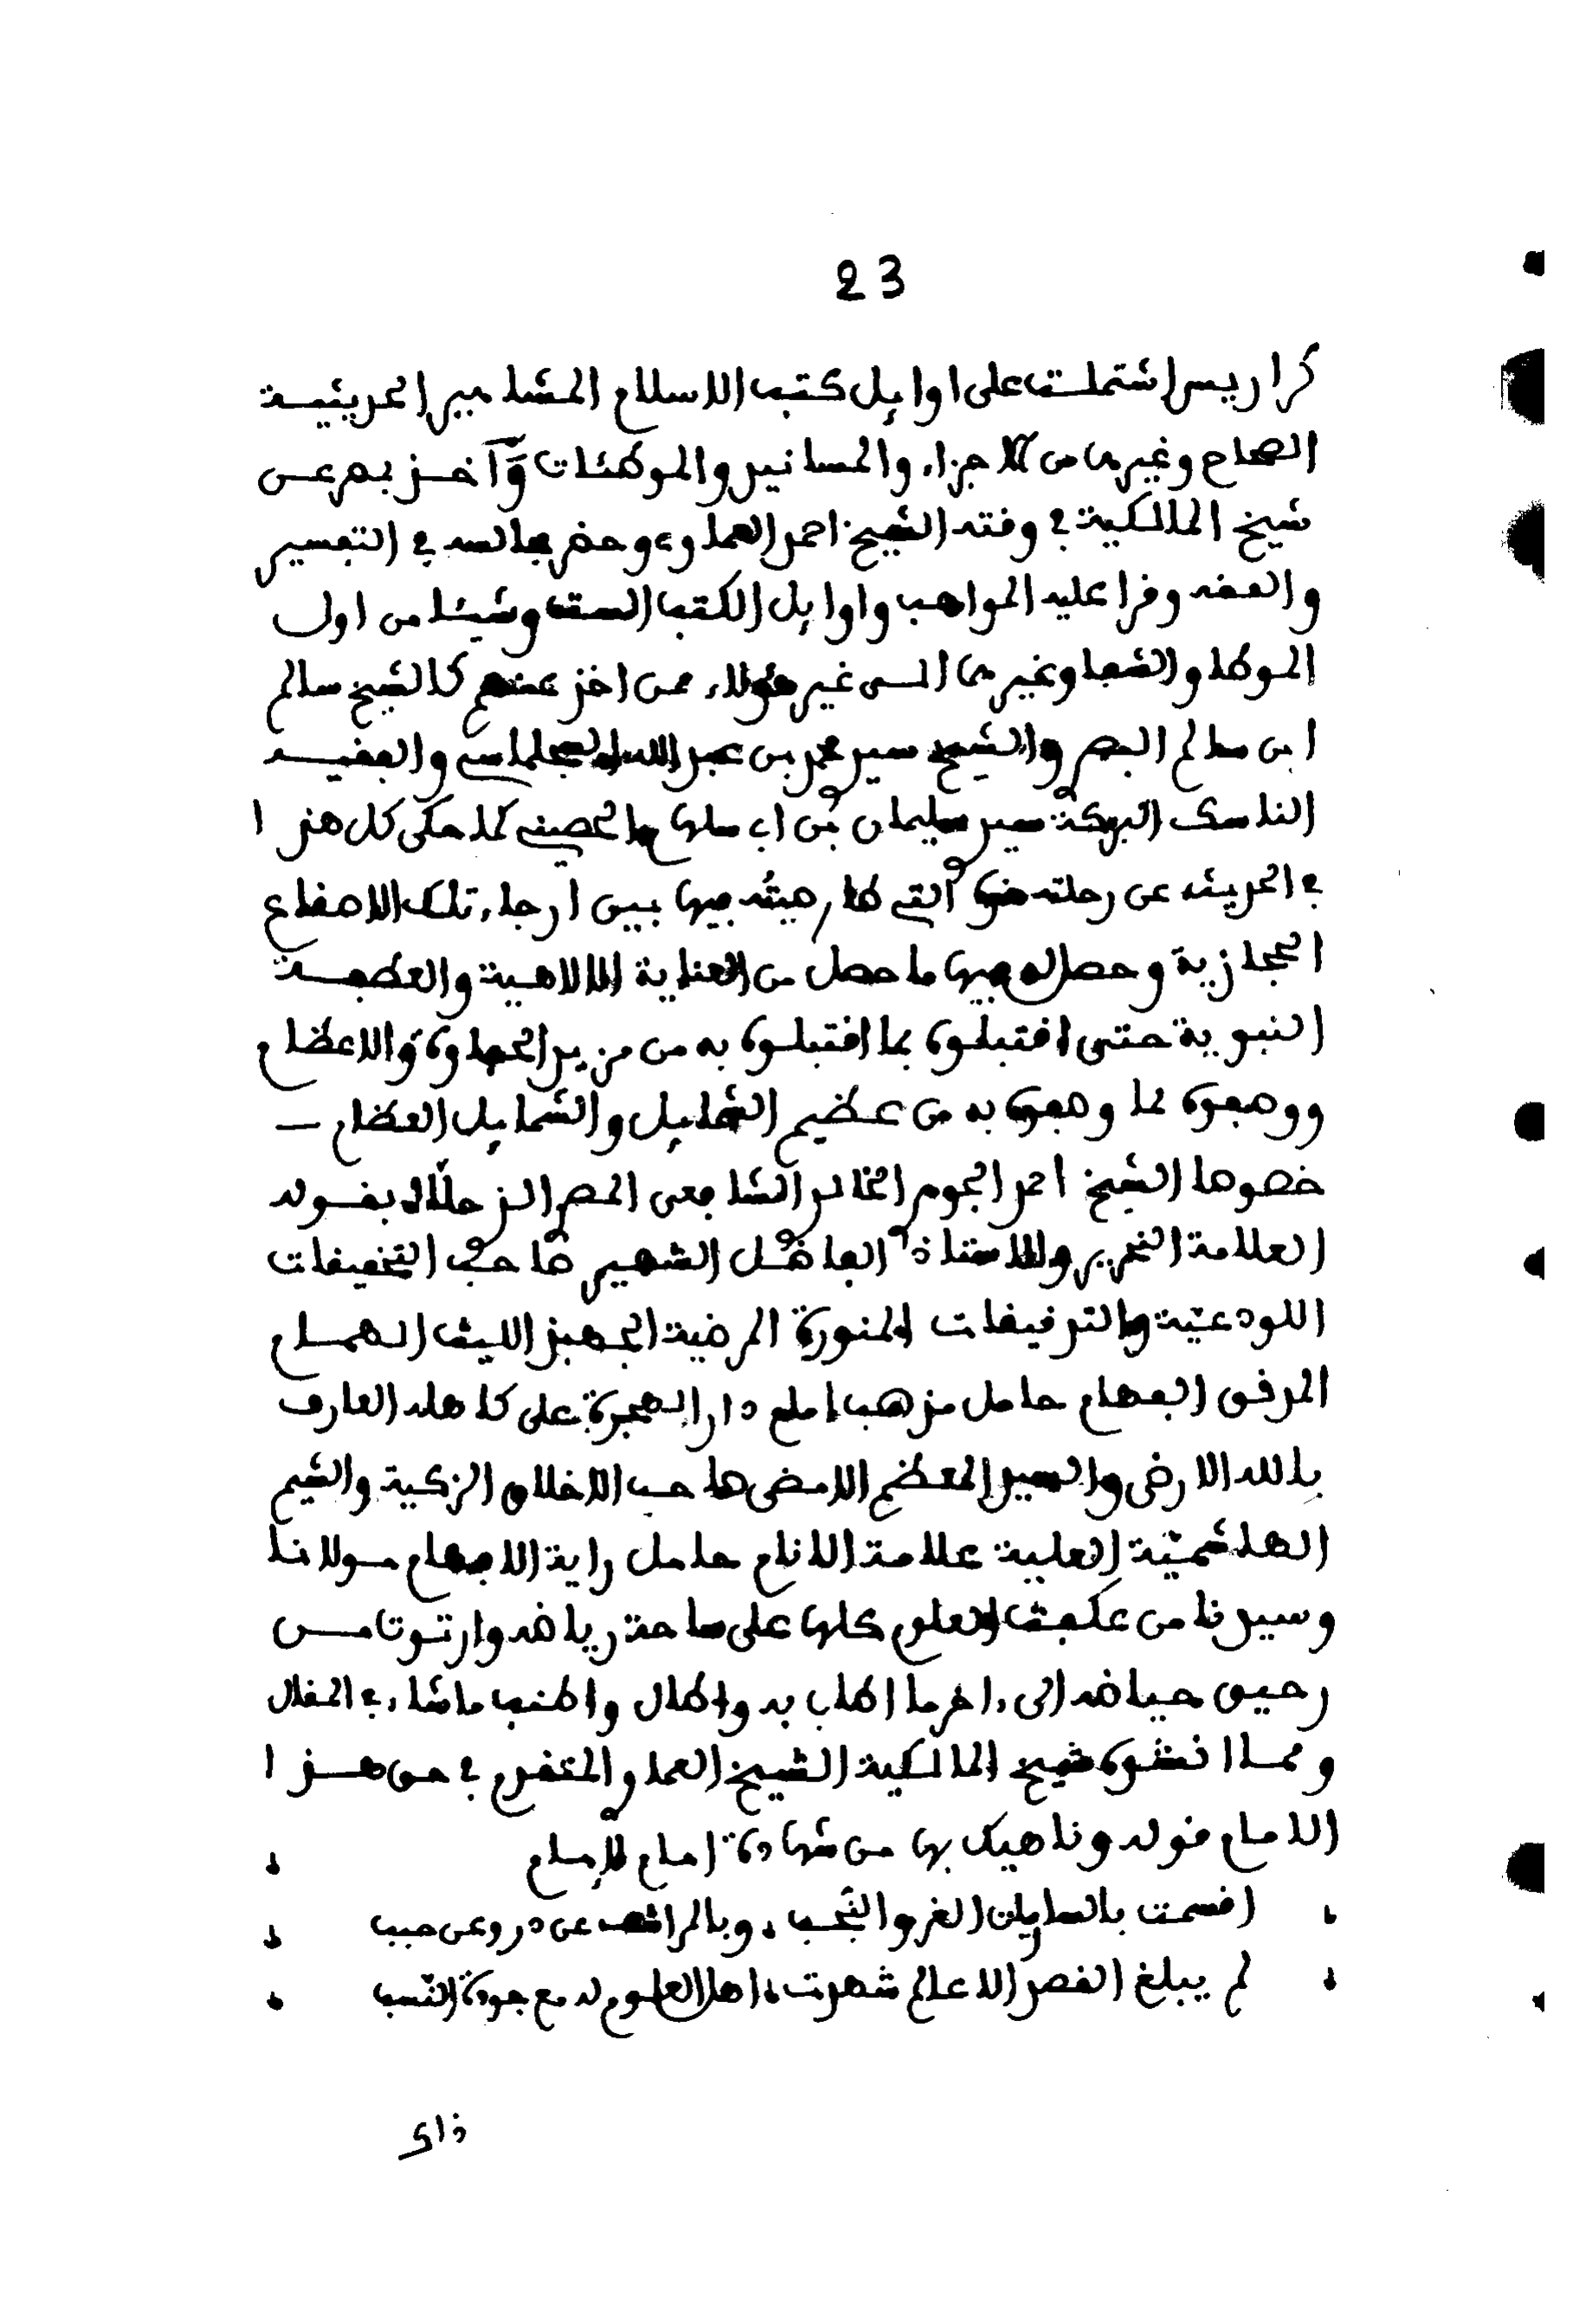 23
كراريس اشتملت على اوايل كتب الاسلام المشاهير الحديثية
الصحاح وغيرها من الاجزاء والمسانيد والموطئات وآخذ بمصر عن
شيخ المالكية في وقته الشيخ احمد الصاوي وحضر مجالسه في التفسير
والفقه وقرا عليه المواهب واوايل الكتب الستة وشيئا من اول
الموطا والشفا وغيرها الى غير هؤلاء ممن اخذ عنهم كالشيخ سالم
ابن سالم البصر والشيخ سيد محمد بن عبد الله السجلماسي والفقيه
الناسك البركة سيد سليمان بن ابي سلهام الحصيني كما حكى كل هذا
في الحديث عن رحلته هذه التي طار صيته فيها بين ارجاء تلك الاصقاع
الحجازية وحصل له فيها ما حصل من العناية الالاهية والعطفة
النبوية حتى اقتبلوه بما اقتبلوه به من مزيد الحفاوة والاعظام
ووصفوه لما وصفوه به من عظيم الشمايل والشمايل العظام
خصوصا الشيخ احمد الجوم الخالد الشافعي المصر الذ حلاه بقوله
العلامة النحرير والاستاذ الفاضل الشهير صاحب التحقيقات
اللودعية والتدقيقات المنورة المرضية الجهبذ الليث الهمام
المدقق الفهام حامل مذهب امام دار الهجرة على كاهله العارف
بالله الارضى والسيد المعظم الامضى صاحب الاخلاق الزكية والشيم
الهاشمية العلية علامة الانام حامل راية الافهام مولانا
وسيدنا من عكفت العلوم كلها على ساحة رياضه وارتوت من
رحيق حياضه الى ءاخر ما اطاب به واطال واطنب ما شاء في المقال
ومما انشده شيخ المالكية الشيخ الصاو المتقدم في حق هذا
الامام قوله وناهيك بها من شهادة امام لإمام
اقسمت بالسابلات الغر والنجب وبالمراشف عن در وعن حبب
لم يبلغ القصد الا عالم شهرت اهل العلوم له مع جودة النسب
ذاى